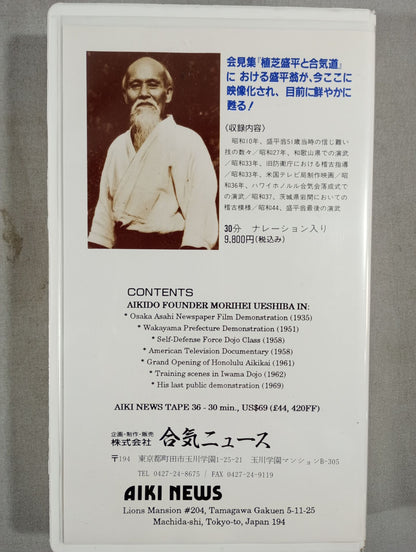 会見集『植芝盛平と合気道』
に おける盛平翁が、今ここに
映像化され、目前に鮮やかに
甦る！
〈収録内容〉
昭和10年、盛平翁51歳当時の信じ難い
技の数々／昭和27年、和歌山県での演武
／昭和33年、旧防衛庁における稽古指導
／昭和33年、米国テレビ局制作映画／昭和
36年、ハワイホノルル合気会落成式で
の演武／昭和37、茨城県岩間においての
稽古模様／昭和44、盛平翁最後の演武
30分 ナレーション入り
9,800円(税込み)
CONTENTS
AIKIDO FOUNDER MORIHEI UESHIBA IN:
* Osaka Asahi Newspaper Film Demonstration (1935)
* Wakayama Prefecture Demonstration (1951)
* Self-Defense Force Dojo Class (1958)
* American Television Documentary (1958)
* Grand Opening of Honolulu Aikikai (1961)
* Training scenes in Iwama Dojo (1962)
* His last public demonstration (1969)
AIKI NEWS TAPE 36 - 30 min., US$69 (£44, 420FF)
企画・制作・販売
株式会社 合気ニュース
〒194 東京都町田市玉川学園1-25-21 玉川学園マンションB-305
TEL 0427-24-8675 / FAX 0427-24-9119
AIKI NEWS
Lions Mansion #204, Tamagawa Gakuen 5-11-25
Machida-shi, Tokyo-to, Japan 194